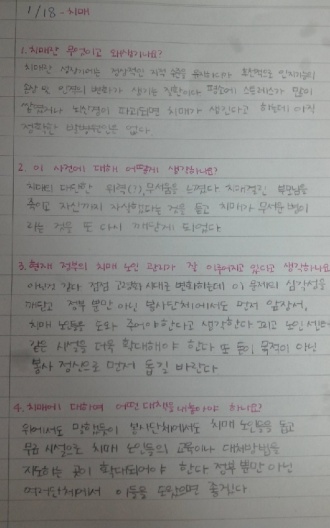 1/18 - 치매
1. 치매란 무엇이고 왜생기나요?
치매란 성장기에는 정상적인 지적 수준을 유지하다가 후천적으로 인지기능의
손상 및 인격의 변화가 생기는 질환이다 평소에 스트레스가 많이
쌓였거나 뇌손상이 파괴되면 치매가 생긴다고 하는데 아직
정확한 발병원인은 없다
2. 이 사건에 대해 어떻게 생각하나요?
치매의 대단한 위력(?), 무서움을 느꼈다 치매걸린 부모님을
죽이고 자신까지 자살했다는 것을 듣고 치매가 무서운 병이
라는 것을 또 다시 깨닫게 되었다
3. 현재 정부의 치매 노인 관리가 잘 이루어지고 있다고 생각하나요
아닌것 같다 점점 고령화사회로 변화하는데 이 문제의 심각성을
깨닫고 정부 뿐만 아닌 봉사단체에서도 먼저 앞장서,
치매 노인들을 도와 주어야 한다고 생각한다 그리고 노인
같은 시설을 더욱 확대해야 한다 또 돈 목적이 아닌
봉사 정신으로 먼저 돕길 바란다
4. 치매에 대하여 어떤 대책을 내놓아야 하나요?
위에서도 말했듯이 봉사단체에서도 치매 노인들을 돕고
무료 시설으로 치매 노인들의 교육이나 대처방법을
지도하는 곳이 확대되어야 한다 정부 뿐만 아닌
여러단체에서 이들을 도왔으면 좋겠다